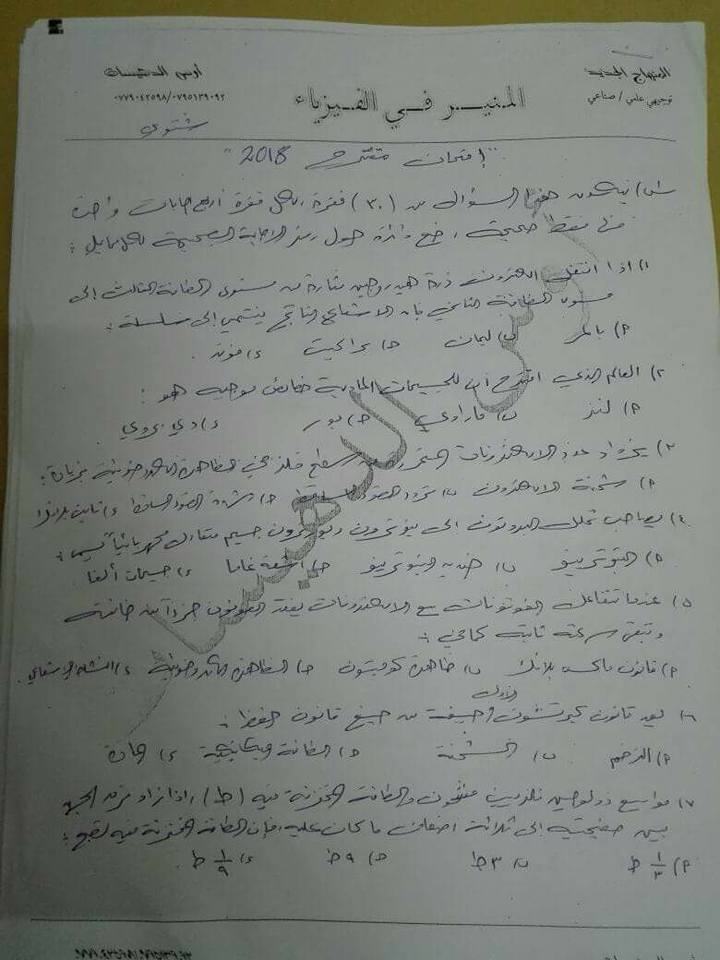 المنهاج الجديد
أوس الدهيسات
توجيهي علمي / صناعي
المنير في الفيزياء
٠٧٧٩٠٤٢٥٩٨/٠٧٩٥١٣٩٠٩٢
شتوي
"إمتحان مقترح 2018"
س١) يتكون هذا السؤال من (٣٠) فقرة، لكل فقرة أربع اجابات واحدة
منها فقط صحيحة، ضع دائرة حول رمز الاجابة الصحيحة لكل مايلي :
١) اذا انتقل الكترون ذرة هيدروجين مثارة من مستوى الطاقة الثالث إلى
مستوى الطاقة الثاني فإن الاشعاع الناتج ينتمي إلى سلسلة :
أ) بالمر ب) ليمان ج) براكيت د) فوند
٢) العالم الذي اقترح أن للجسيمات المادية خصائص موجية هو :
أ) لنز ب) فارادي ج) بور د) دي بروي
٣) يزداد عدد الالكترونات المتحررة من سطح فلز في الظاهرة الكهروضوئية بزيادة :
أ) شحنة الالكترون ب) تردد الضوء الساقط ج) شدة الضوء الساقط د) ثابت بلانك
٤) يصاحب تحلل البروتون الى نيوترون وبوزيترون جسيم متعادل كهربائياً يسمى :
أ) النيوترينو ب) ضديد النيوترينو ج) أشعة غاما د) جسيمات ألفا
٥) عندما تتفاعل الفوتونات مع الالكترونات يفقد الفوتون جزءاً من طاقته
وتبقى سرعته ثابتة كما في :
أ) قانون ماكس بلانك ب) ظاهرة كومبتون ج) الظاهرة الكهروضوئية د) النشاط الاشعاعي
٦) يعد قانون كيرتشوف الأول صيغة من صيغ قانون حفظ :
أ) الزخم ب) الشحنة ج) الطاقة الميكانيكية د) المادة
٧) مواسع ذو لوحين فلزيين مشحون والطاقة المختزنة فيه (ط)، اذا زاد فرق الجهد
بين صفيحتيه إلى ثلاثة اضعاف ما كان عليه، فإن الطاقة المختزنة فيه تصبح :
أ) ١/٣ ط ب) ٣ ط ج) ٩ ط د) ١/٩ ط